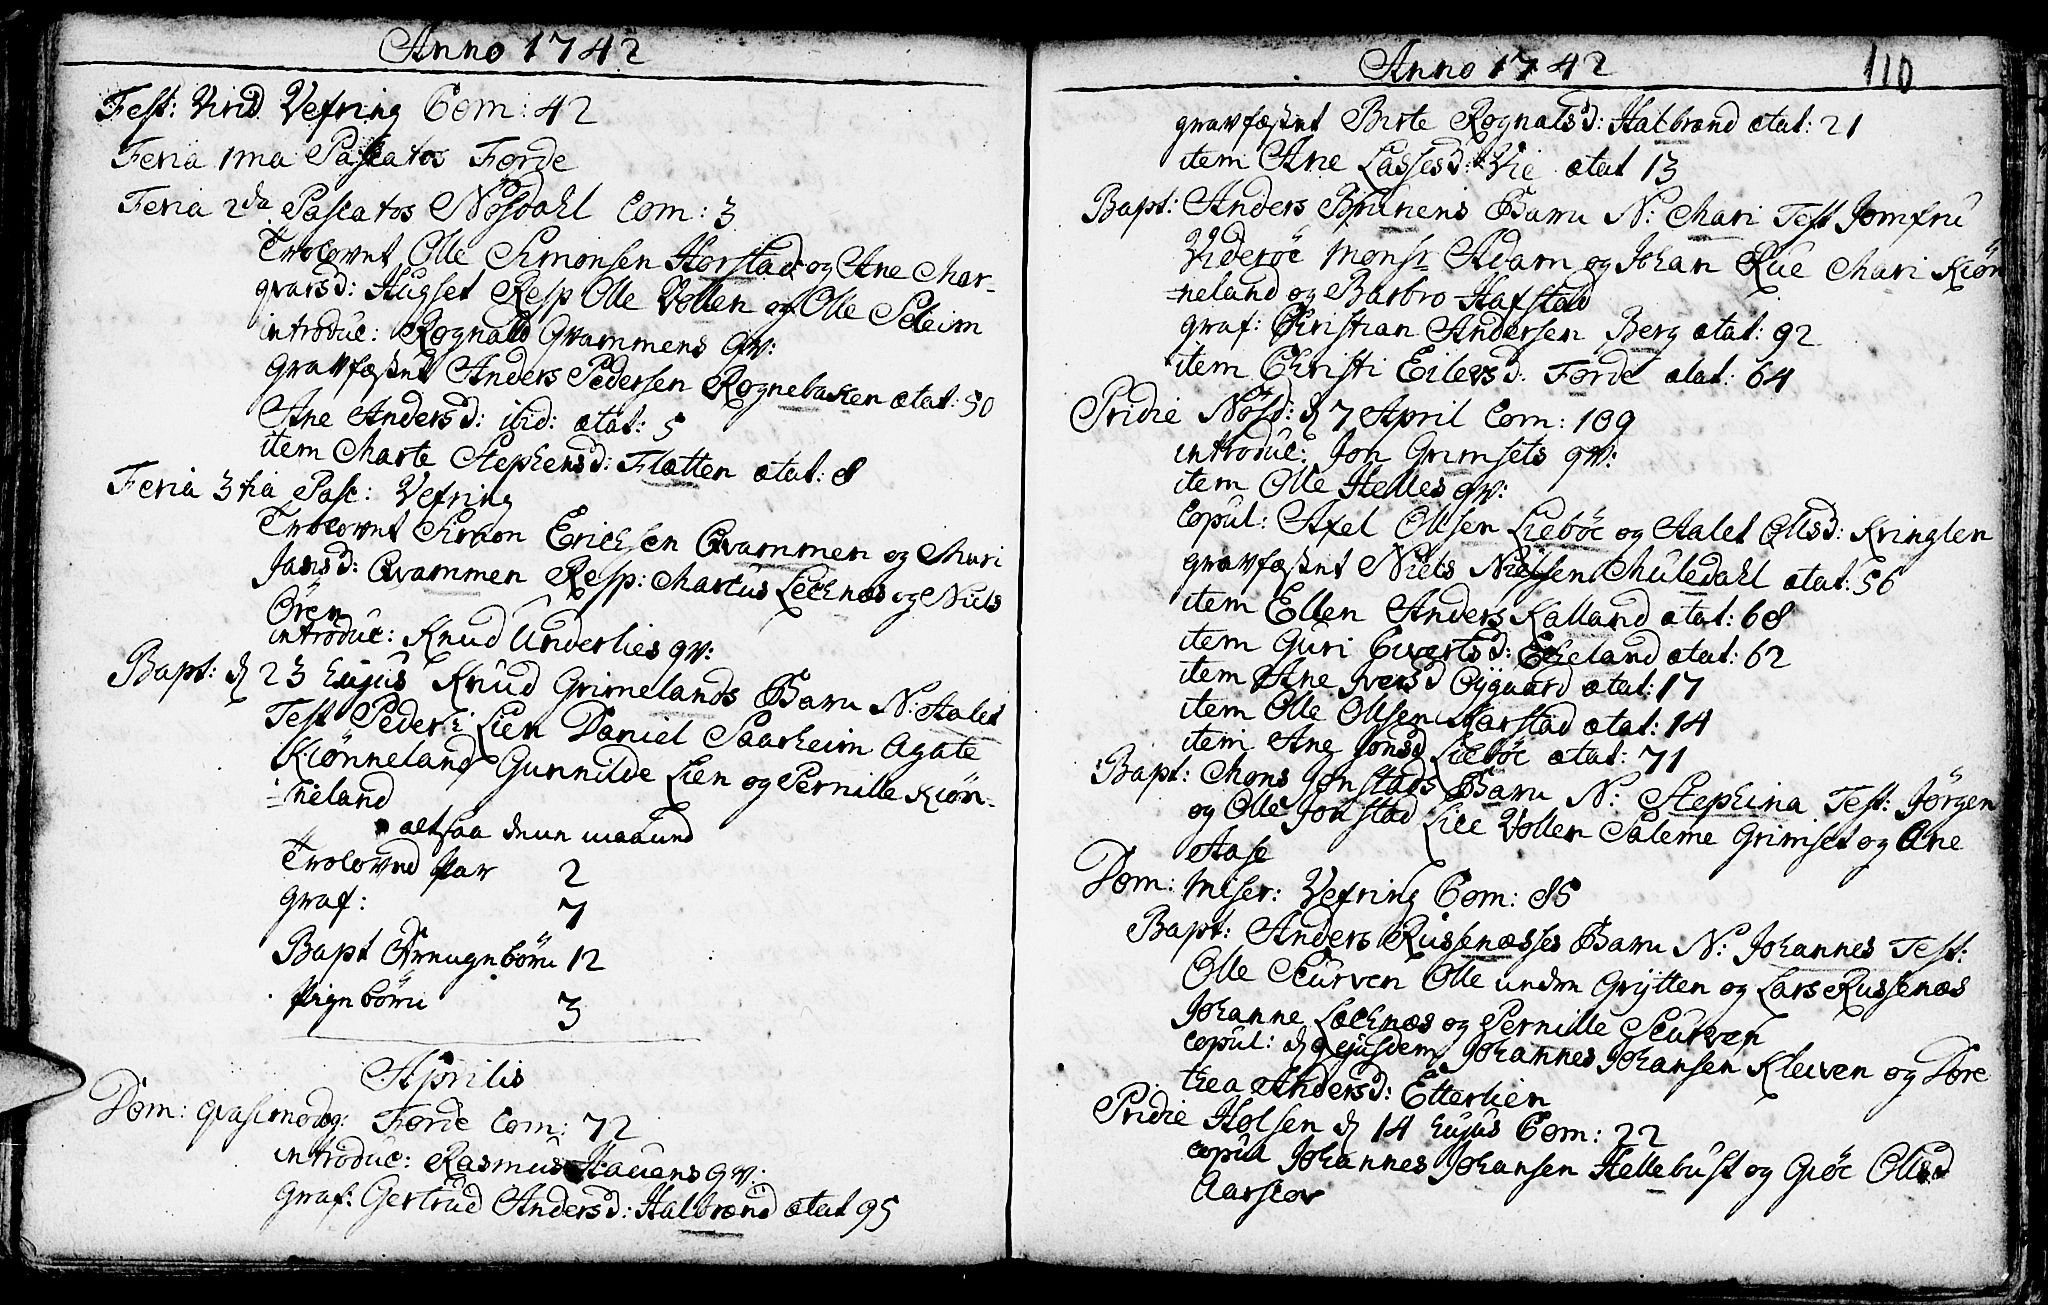 Anno 1742
Fest: Virid Vefring Com: 42
Feria 1ma Pascatos Førde
Feria 2da Pascatos Nösdahl Com: 3
Trolovet Olle Simonsen Horstad og Ane Mar-
qvarsd: Hugset Resp Olle Vollen og Olle Soleim
introduc: Rognald Qvammens qv:
gravfæstet Anders Pedersen Rognebakken ætat: 50
Ane Andersd: ibid: ætat: 5
item Marte Stephensd: Flatten ætat: 8
Feria 3tia Pasc: Vefring
Trolovet Simon Ericksen Qvammen og Mari
Jansd: Qvammen Resp: Martus Lecknæs og Niels
Ören
introduc: Knud Underlies qv:
Bapt: d 23 hujus Knud Grimelands Barn N: Aalet
Test Peder i Lien Daniel Saarheim Agate
Kiønneland Gunnilde Lien og Pernille Kiön-
=neland
altsaa denn maaned
Troloved Par 2
graf: 7
Bapt Drengebörn 12
Pigebörn 3
Aprilis
Dom: qvasimodog: Førde Com: 72
introduc: Rasmus Havens qv:
Graf: Gertrud Andersd: Halbrend ætat 95
Anno 1742 110
gravfæstet Birte Rognalsd: Halbrend ætat: 21
item Ane Lassesd: Vie ætat 13
Bapt: Anders Brunens Barn N: Mari Test Jomfru
Videröe Monsr Adam og Johan Rue Mari Kiön
=neland og Barbro Hafstad
graf: Christian Andersen Berg ætat: 92
item Christi Eilersd: Førde ætat: 64
Pridie Nösd: d 7 April Com: 109
introduc: Jon Grimsets qv:
item Olle Helles qv:
Copul: Axel Ollsen Lieböe og Aalet Ollsd: Kringlen
gravfæstet Niels Nielsen Muledahl ætat: 56
item Ellen Anders Kalland ætat: 68
item Guri Sivertsd: Eckeland ætat: 62
item Ane Iversd Öygaard ætat: 17
item Olle Ollsen Harstad ætat: 14
item Ane Jonsd Lieböe ætat: 71
Bapt: Mons Jonstads Barn N: Stephina Test: Jörgen
og Olle Jonstad Lice Vollen Saleme Grimset og Ane
Aase
Dom: Miser: Vefring Com: 85
Bapt: Anders Russenæsses Barn N: Johannes Test:
Olle Scurven Olle under Grytten og Lars Russenæs
Johanne Lecknæs og Pernille Scurven
Copul: d 9 ejusdem Johannes Johansen Kleiven og Dore
thea Andersd: Etterlien
Pridie Holsen d 14 hujus Com: 22
copul Johannes Johansen Hellebust og Giöe Ollsd
Aarscov